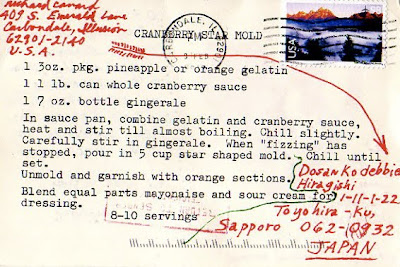 richard canard
409 S. Emerald Lane
Carbondale, Illusion
62901-2140
U.S.A.
CARBONDALE, IL
PM
USA
CRANBERRY STAR MOLD
1 3oz. pkg. pineapple or orange gelatin
1 1 lb. can whole cranberry sauce
1 7 oz. bottle gingerale
In sauce pan, combine gelatin and cranberry sauce,
heat and stir till almost boiling. Chill slightly.
Carefully stir in gingerale. When "fizzing" has
stopped, pour in 5 cup star shaped mold. Chill until
set.
Unmold and garnish with orange sections.
Blend equal parts mayonaise and sour cream for
dressing.
8-10 servings
Dosanko debbie
Hiragishi
1-11-1-22
Toyohira-Ku,
Sapporo 062-0932
JAPAN